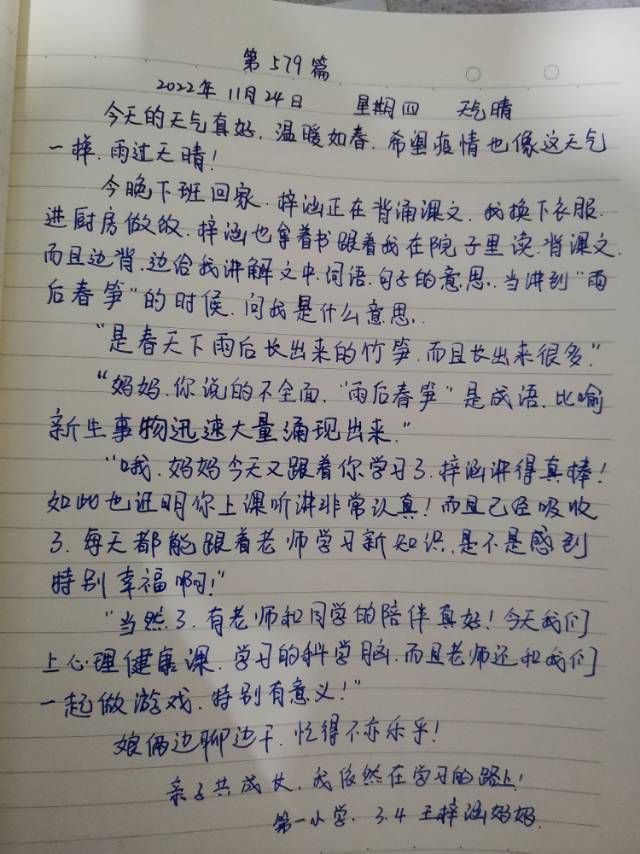 第579篇
2022年11月24日 星期四 天气晴
今天的天气真好.温暖如春.希望疫情也像这天气
一样.雨过天晴!
今晚下班回家.梓涵正在背诵课文.我换下衣服.
进厨房做饭.梓涵也拿着书跟着我在院子里读.背课文.
而且边背.边给我讲解文中.词语.句子的意思.当讲到“雨
后春笋”的时候.问我是什么意思.
“是春天下雨后长出来的竹笋.而且长出来很多.”
“妈妈.你说的不全面.“雨后春笋”是成语.比喻
新生事物迅速大量涌现出来.”
“哦.妈妈今天又跟着你学习了.梓涵讲得真棒!
如此也证明你上课听讲非常认真!而且已经吸收
了.每天都能跟着老师学习新知识.是不是感到
特别幸福啊!”
“当然了.有老师和同学的陪伴真好!今天我们
上心理健康课.学习的科学脑.而且老师还和我们
一起做游戏.特别有意义!”
娘俩边聊边干.忙得不亦乐乎!
亲子共成长.我依然在学习的路上!
第一小学.3.4 王梓涵妈妈.